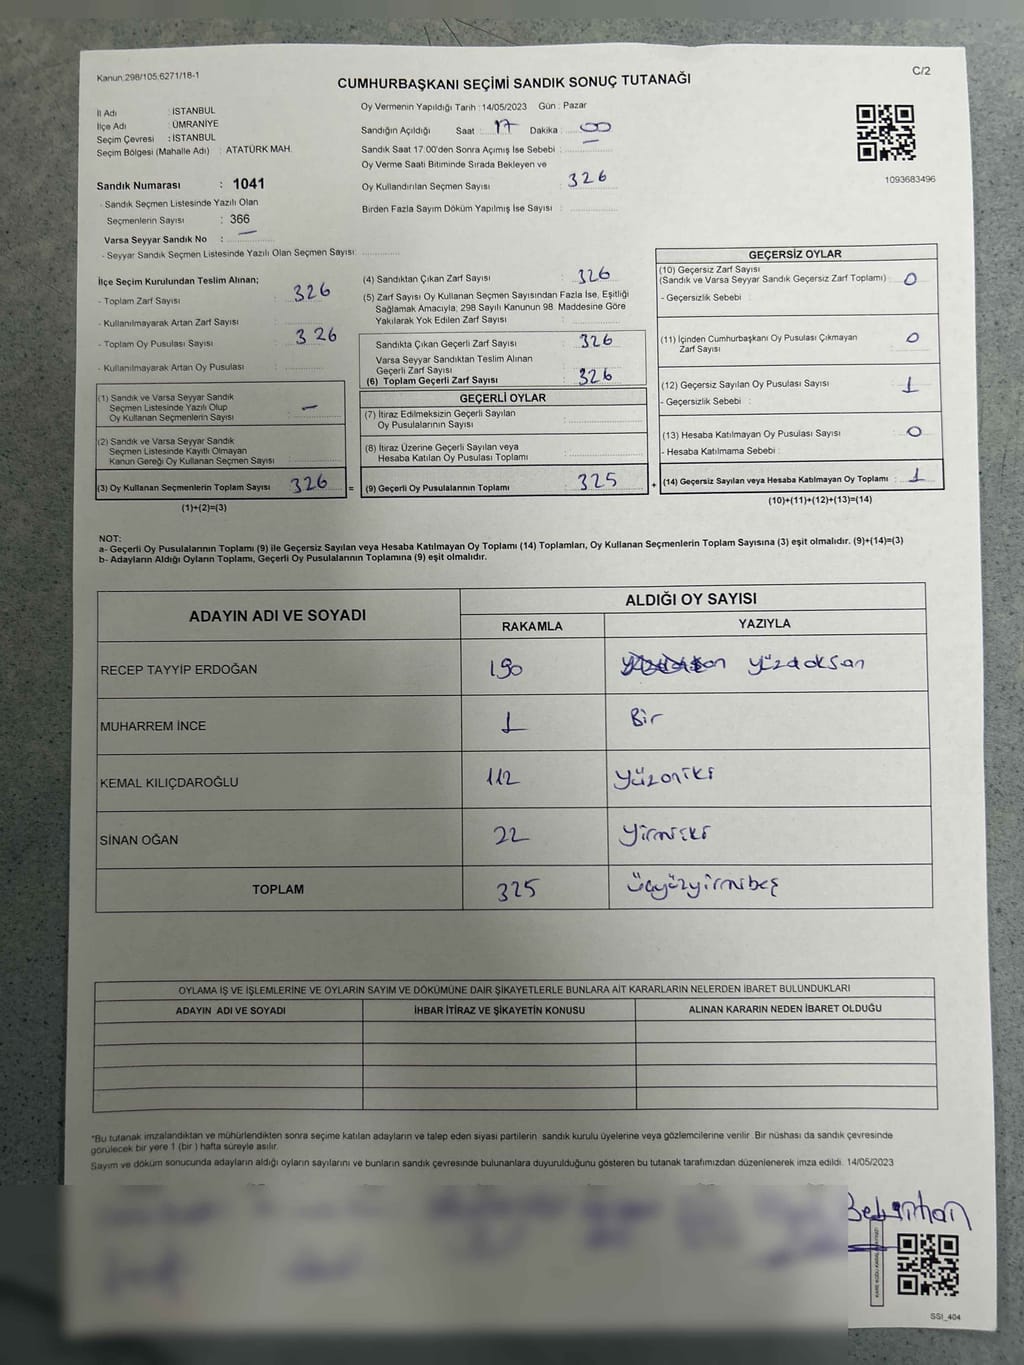 Kanun:298/105;6271/18-1
C/2
CUMHURBAŞKANI SEÇİMİ SANDIK SONUÇ TUTANAĞI
İl Adı : İSTANBUL
İlçe Adı : ÜMRANİYE
Seçim Çevresi : İSTANBUL
Seçim Bölgesi (Mahalle Adı) : ATATÜRK MAH.
Sandık Numarası : 1041
- Sandık Seçmen Listesinde Yazılı Olan
Seçmenlerin Sayısı : 366
Varsa Seyyar Sandık No : —
- Seyyar Sandık Seçmen Listesinde Yazılı Olan Seçmen Sayısı:
Oy Vermenin Yapıldığı Tarih : 14/05/2023 Gün : Pazar
Sandığın Açıldığı Saat : 17 Dakika : 00
Sandık Saat 17:00'den Sonra Açımış İse Sebebi : —
Oy Verme Saati Bitiminde Sırada Bekleyen ve
Oy Kullandırılan Seçmen Sayısı : 326
Birden Fazla Sayım Döküm Yapılmış İse Sayısı :
1093683496
İlçe Seçim Kurulundan Teslim Alınan;
- Toplam Zarf Sayısı : 326
- Kullanılmayarak Artan Zarf Sayısı :
- Toplam Oy Pusulası Sayısı : 326
- Kullanılmayarak Artan Oy Pusulası :
(1) Sandık ve Varsa Seyyar Sandık
Seçmen Listesinde Yazılı Olup
Oy Kullanan Seçmenlerin Sayısı : —
(2) Sandık ve Varsa Seyyar Sandık
Seçmen Listesinde Kayıtlı Olmayan
Kanun Gereği Oy Kullanan Seçmen Sayısı :
(3) Oy Kullanan Seçmenlerin Toplam Sayısı : 326 =
(1)+(2)=(3)
(4) Sandıktan Çıkan Zarf Sayısı : 326
(5) Zarf Sayısı Oy Kullanan Seçmen Sayısından Fazla İse, Eşitliği
Sağlamak Amacıyla; 298 Sayılı Kanunun 98. Maddesine Göre
Yakılarak Yok Edilen Zarf Sayısı :
Sandıkta Çıkan Geçerli Zarf Sayısı : 326
Varsa Seyyar Sandıktan Teslim Alınan
Geçerli Zarf Sayısı :
(6) Toplam Geçerli Zarf Sayısı : 326
GEÇERLİ OYLAR
(7) İtiraz Edilmeksizin Geçerli Sayılan
Oy Pusulalarının Sayısı :
(8) İtiraz Üzerine Geçerli Sayılan veya
Hesaba Katılan Oy Pusulası Toplamı :
(9) Geçerli Oy Pusulalarının Toplamı : 325 +
GEÇERSİZ OYLAR
(10) Geçersiz Zarf Sayısı
(Sandık ve Varsa Seyyar Sandık Geçersiz Zarf Toplamı) : 0
- Geçersizlik Sebebi :
(11) İçinden Cumhurbaşkanı Oy Pusulası Çıkmayan
Zarf Sayısı : 0
(12) Geçersiz Sayılan Oy Pusulası Sayısı : 1
- Geçersizlik Sebebi :
(13) Hesaba Katılmayan Oy Pusulası Sayısı : 0
- Hesaba Katılmama Sebebi :
(14) Geçersiz Sayılan veya Hesaba Katılmayan Oy Toplamı : 1
(10)+(11)+(12)+(13)=(14)
NOT:
a- Geçerli Oy Pusulalarının Toplamı (9) ile Geçersiz Sayılan veya Hesaba Katılmayan Oy Toplamı (14) Toplamları, Oy Kullanan Seçmenlerin Toplam Sayısına (3) eşit olmalıdır. (9)+(14)=(3)
b- Adayların Aldığı Oyların Toplamı, Geçerli Oy Pusulalarının Toplamına (9) eşit olmalıdır.
ADAYIN ADI VE SOYADI
ALDIĞI OY SAYISI
RAKAMLA YAZIYLA
RECEP TAYYİP ERDOĞAN 190 yüzdoksan
MUHARREM İNCE 1 Bir
KEMAL KILIÇDAROĞLU 112 yüzoniki
SİNAN OĞAN 22 yirmiki
TOPLAM 325 üçyüzyirmibeş
OYLAMA İŞ VE İŞLEMLERİNE VE OYLARIN SAYIM VE DÖKÜMÜNE DAİR ŞİKAYETLERLE BUNLARA AİT KARARLARIN NELERDEN İBARET BULUNDUKLARI
ADAYIN ADI VE SOYADI İHBAR İTİRAZ VE ŞİKAYETİN KONUSU ALINAN KARARIN NEDEN İBARET OLDUĞU
"Bu tutanak imzalandıktan ve mühürlendikten sonra seçime katılan adayların ve talep eden siyasi partilerin sandık kurulu üyelerine veya gözlemcilerine verilir. Bir nüshası da sandık çevresinde
görülecek bir yere 1 (bir ) hafta süreyle asılır.
Sayım ve döküm sonucunda adayların aldığı oyların sayılarını ve bunların sandık çevresinde bulunanlara duyurulduğunu gösteren bu tutanak tarafımızdan düzenlenerek imza edildi. 14/05/2023
SSI_404